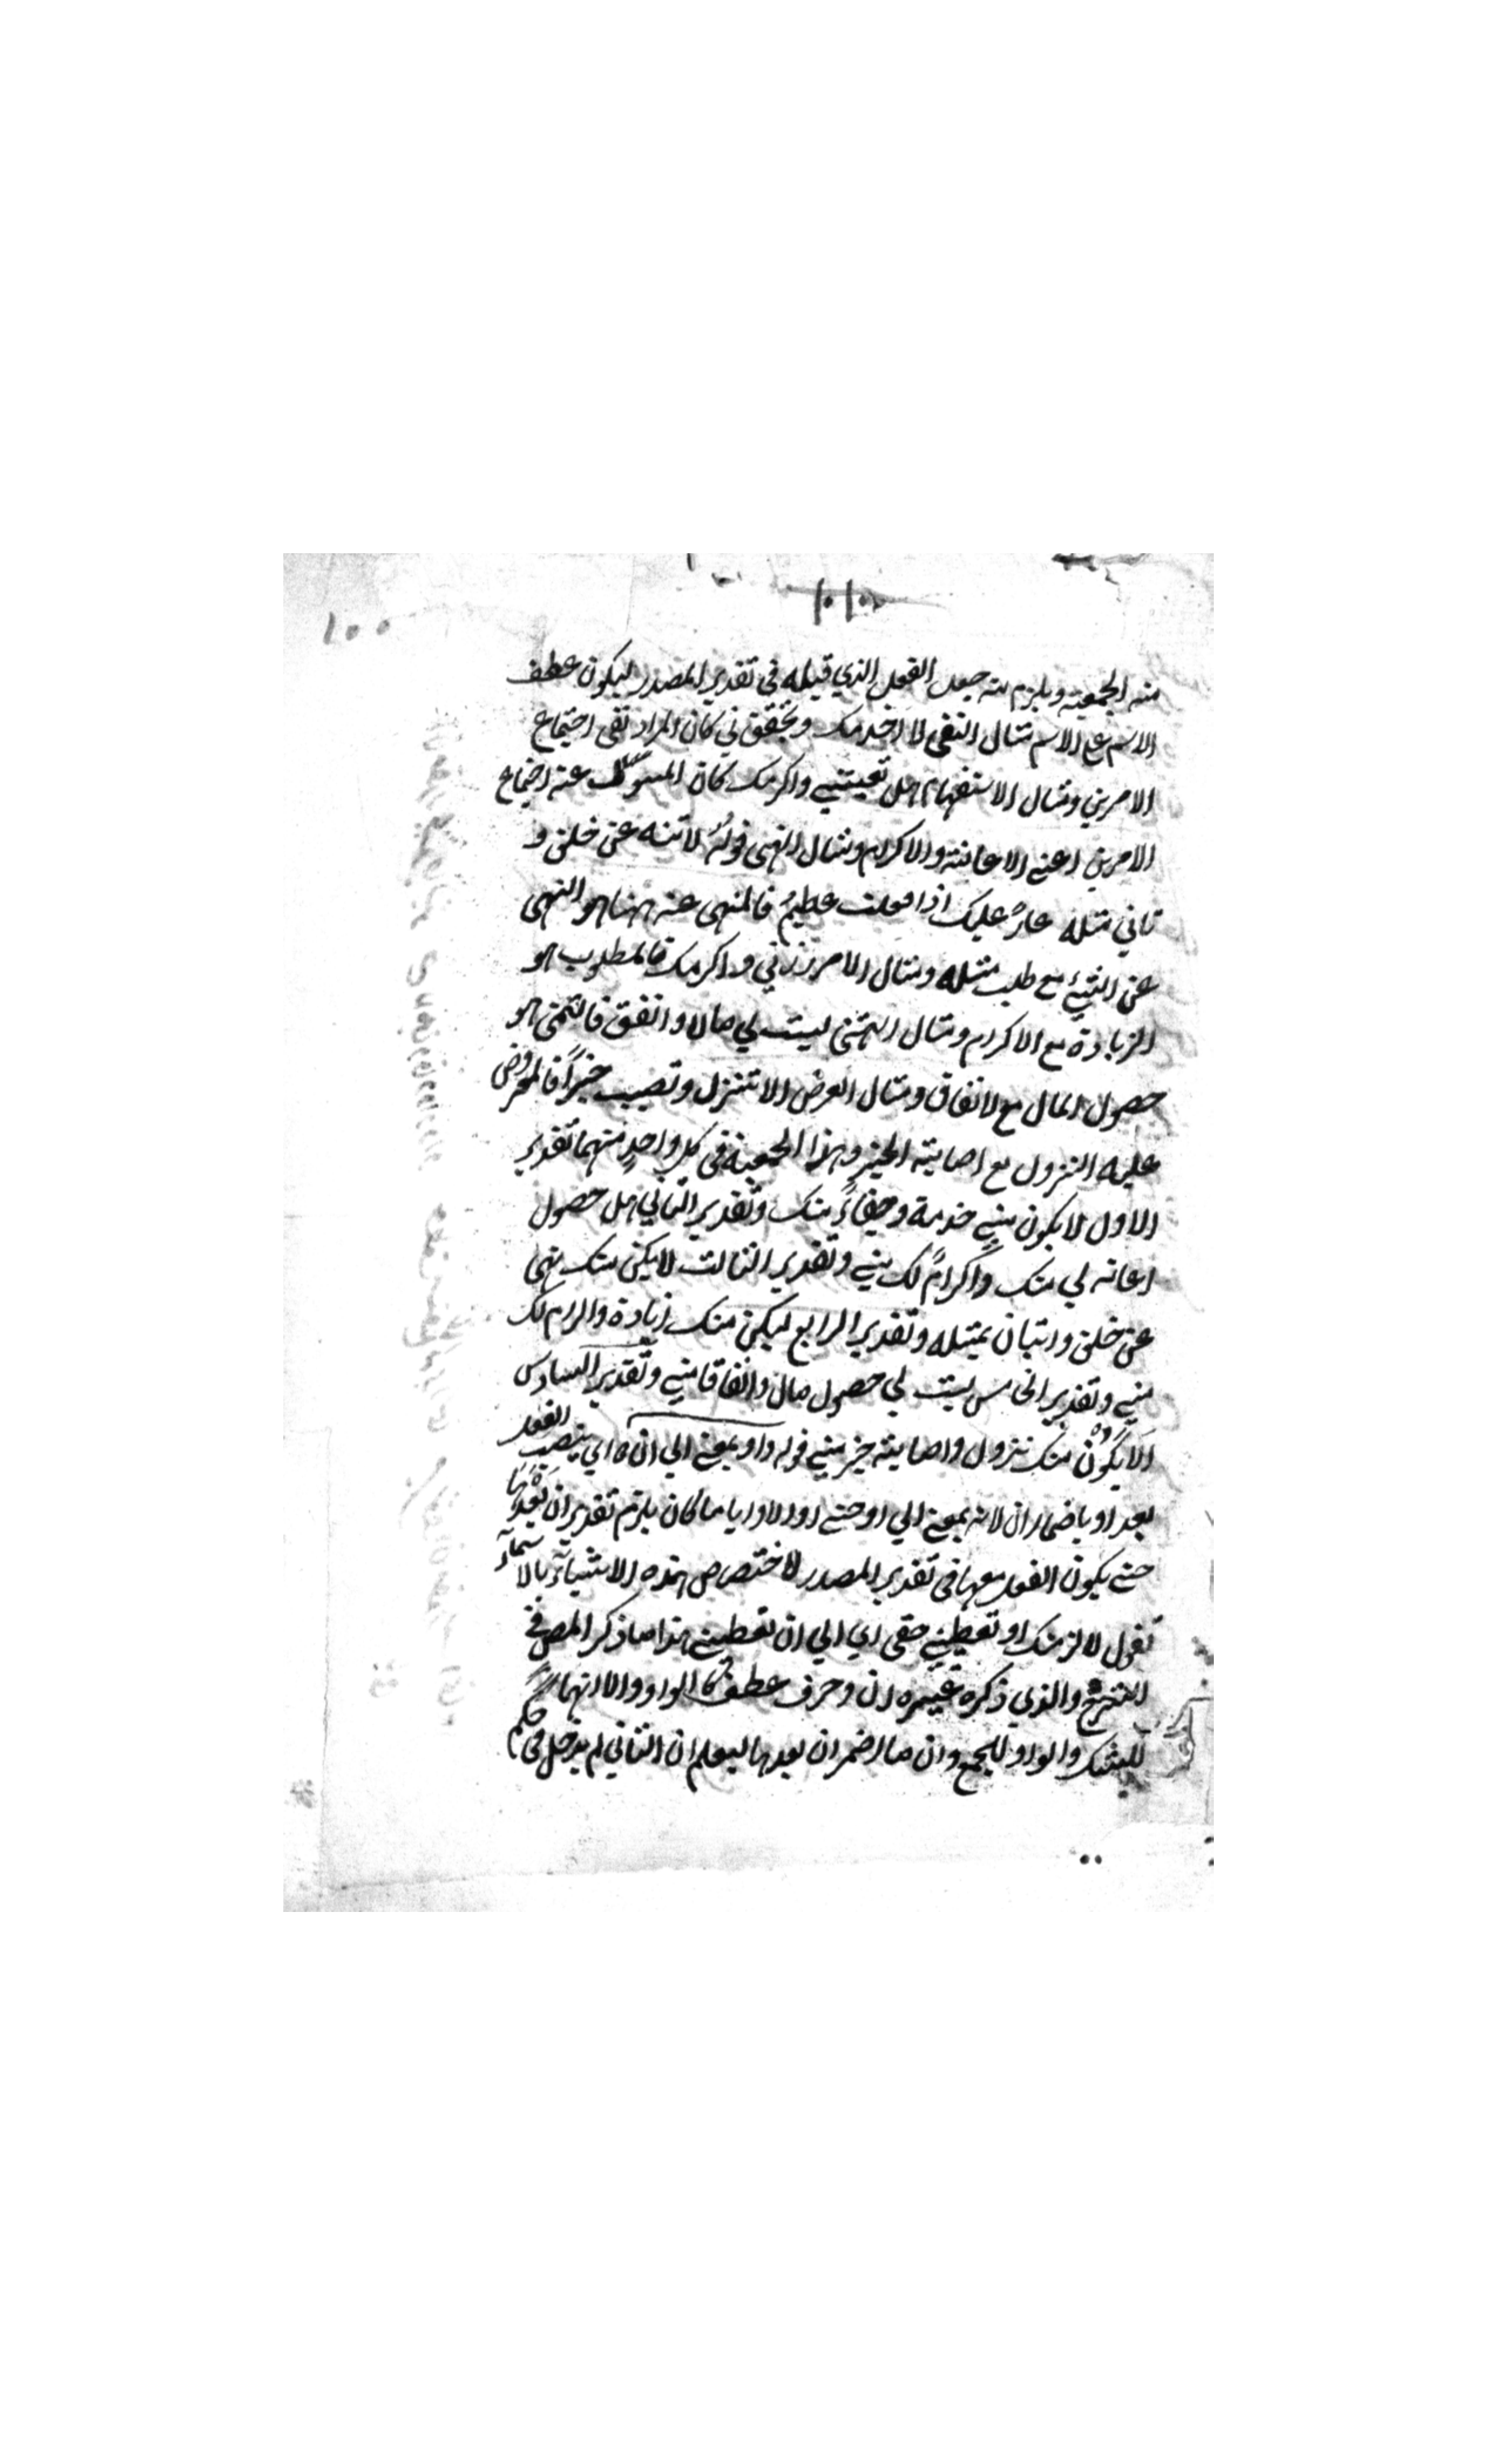 ١٠١
١٠٠
منه الجمعية ويلزم منه جعل الفعل الذي قبله في تقدير المصدر ليكون عطف
الاسم ع الاسم مثال النفى لا اخدمك وتحقق ني كان المراد نفى اجتماع
الامرين ومثال الاستفهام هل تعينني واكرمك كان المسؤل عنه اجتماع
الامرين اعني الاعانة والاكرام ومثال النهى قوله لا تنه عن خلق و
تاتي مثله عارٌ عليك اذا فعلت عظيمُ فالمنهى عنه ههنا هو النهى
عن الشيء مع طلب مثله ومثال الامر زرني واكرمك فالمطلوب هو
الزيادة مع الاكرام ومثال التمنى ليت لي مالا وانفق فالتمنى هو
حصول المال مع لانفاق ومثال العرض الا تنزل وتصيب خيراً فالمعروض
عليه النزول مع اصابته الخير وهذا الجمعية في كل واحدٍ منهما تقدير
الاول لا يكون مني خدمة وجفاءً منك وتقدير الثاني هل حصول
اعانه لي منك واكرامً لك مني وتقدير الثالث لا يكن منك نهى
عن خلق واتيان بمثله وتقدير الرابع ليكن منك زيادة والرام لك
مني وتقدير الخامس ليت لي حصول مال وانفاقا مني وتقدير السادس
الا يكون منك نزول واصابته خير مني قوله واو بمعنى الي ان اي ينصب الفعل
بعد او باضمار ان لانه بمعنى الي او حتى اوالا وايا ما كان يلزم تقدير ان بعدها
حتى يكون الفعل معها في تقدير المصدر لاختصاص هذه الاشياء بالاسمآء
تقول لالزمنك او تعطيني حقى اي الي ان تعطيني هذا ما ذكر المص في
الشرح والذي ذكره غيره ان وحرف عطف كالواو والا انها
للشك والواو للجمع وان ما اضمر ان بعدها ليعلم ان الثاني لم يدخل في حكم